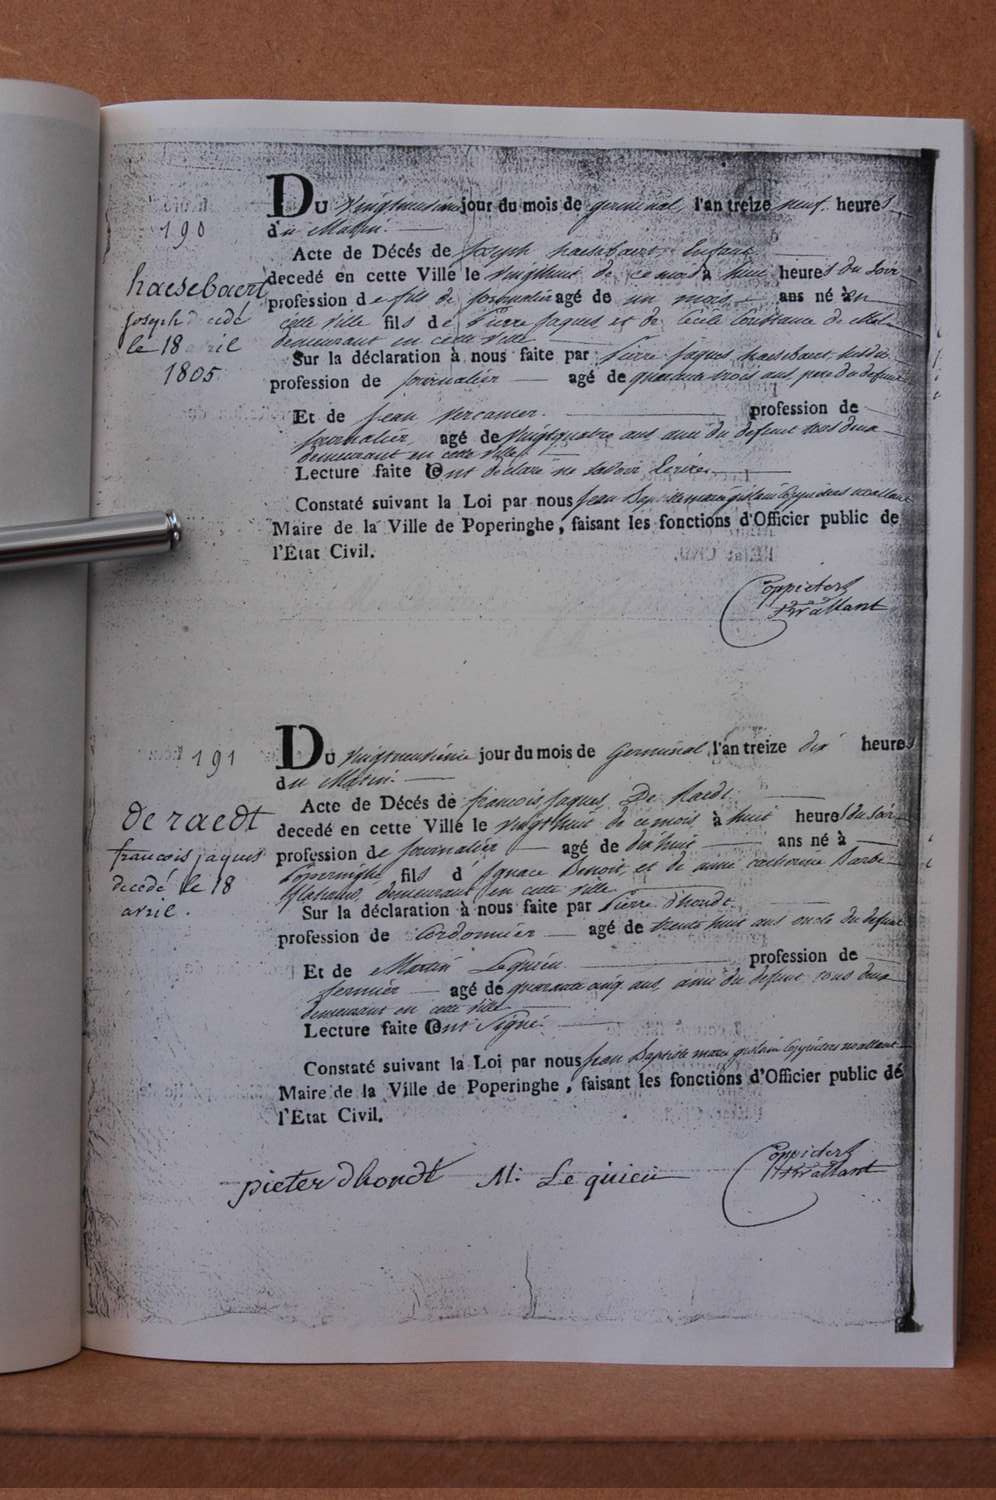 190
haesebaert
joseph decedé
le 18 avril
1805
Du Vingtneuvième jour du mois de germinal, l'an treize neuf heures
du Matin.
Acte de Décés de Joseph haesebaert Enfant
decedé en cette Ville le Vingthuit de ce mois à huit heures du Soir
profession de fils de journalier agé de un mois ans né à en
cette Ville fils de Pierre Jaques et de Cécile Constance de
demeurant en cette Ville
Sur la déclaration à nous faite par Pierre Jaques haesebaert susdit
profession de journalier agé de quarante trois ans pere du defunt
Et de Jean Vercamer. profession de
journalier, agé de Vingtquatre ans ami du defunt tous deux
demeurant en cette Ville.
Lecture faite Ont declaré ne savoir Ecrire.
Constaté suivant la Loi par nous Jean Baptiste marie gislain Coppieters wallant
Maire de la Ville de Poperinghe, faisant les fonctions d'Officier public de
l'État Civil.
Coppieters
tWallant
191
de raedt
francois jaques
decedé le 18
avril.
Du Vingtneuvième jour du mois de Germinal l'an treize dix heures
du Matin.
Acte de Décés de francois Jaques De Raedt
decedé en cette Ville le Vingthuit de ce mois à huit heures du Soir
profession de journalier agé de dixhuit ans né à
Poperinghe, fils d Ignace Benoit, et de anne catherine Barbe
demeurant en cette ville
Sur la déclaration à nous faite par Pierre d'hondt
profession de Cordonnier agé de trente huit ans oncle du defunt
Et de Martin Lequieu profession de
fermier agé de quarante cinq ans, ami du defunt tous deux
demeurant en cette Ville
Lecture faite Ont Signé.
Constaté suivant la Loi par nous Jean Baptiste marie gislain Coppieters wallant
Maire de la Ville de Poperinghe, faisant les fonctions d'Officier public de
l'Etat Civil.
pieter dhondt M: Le quieu Coppieters
tWallant